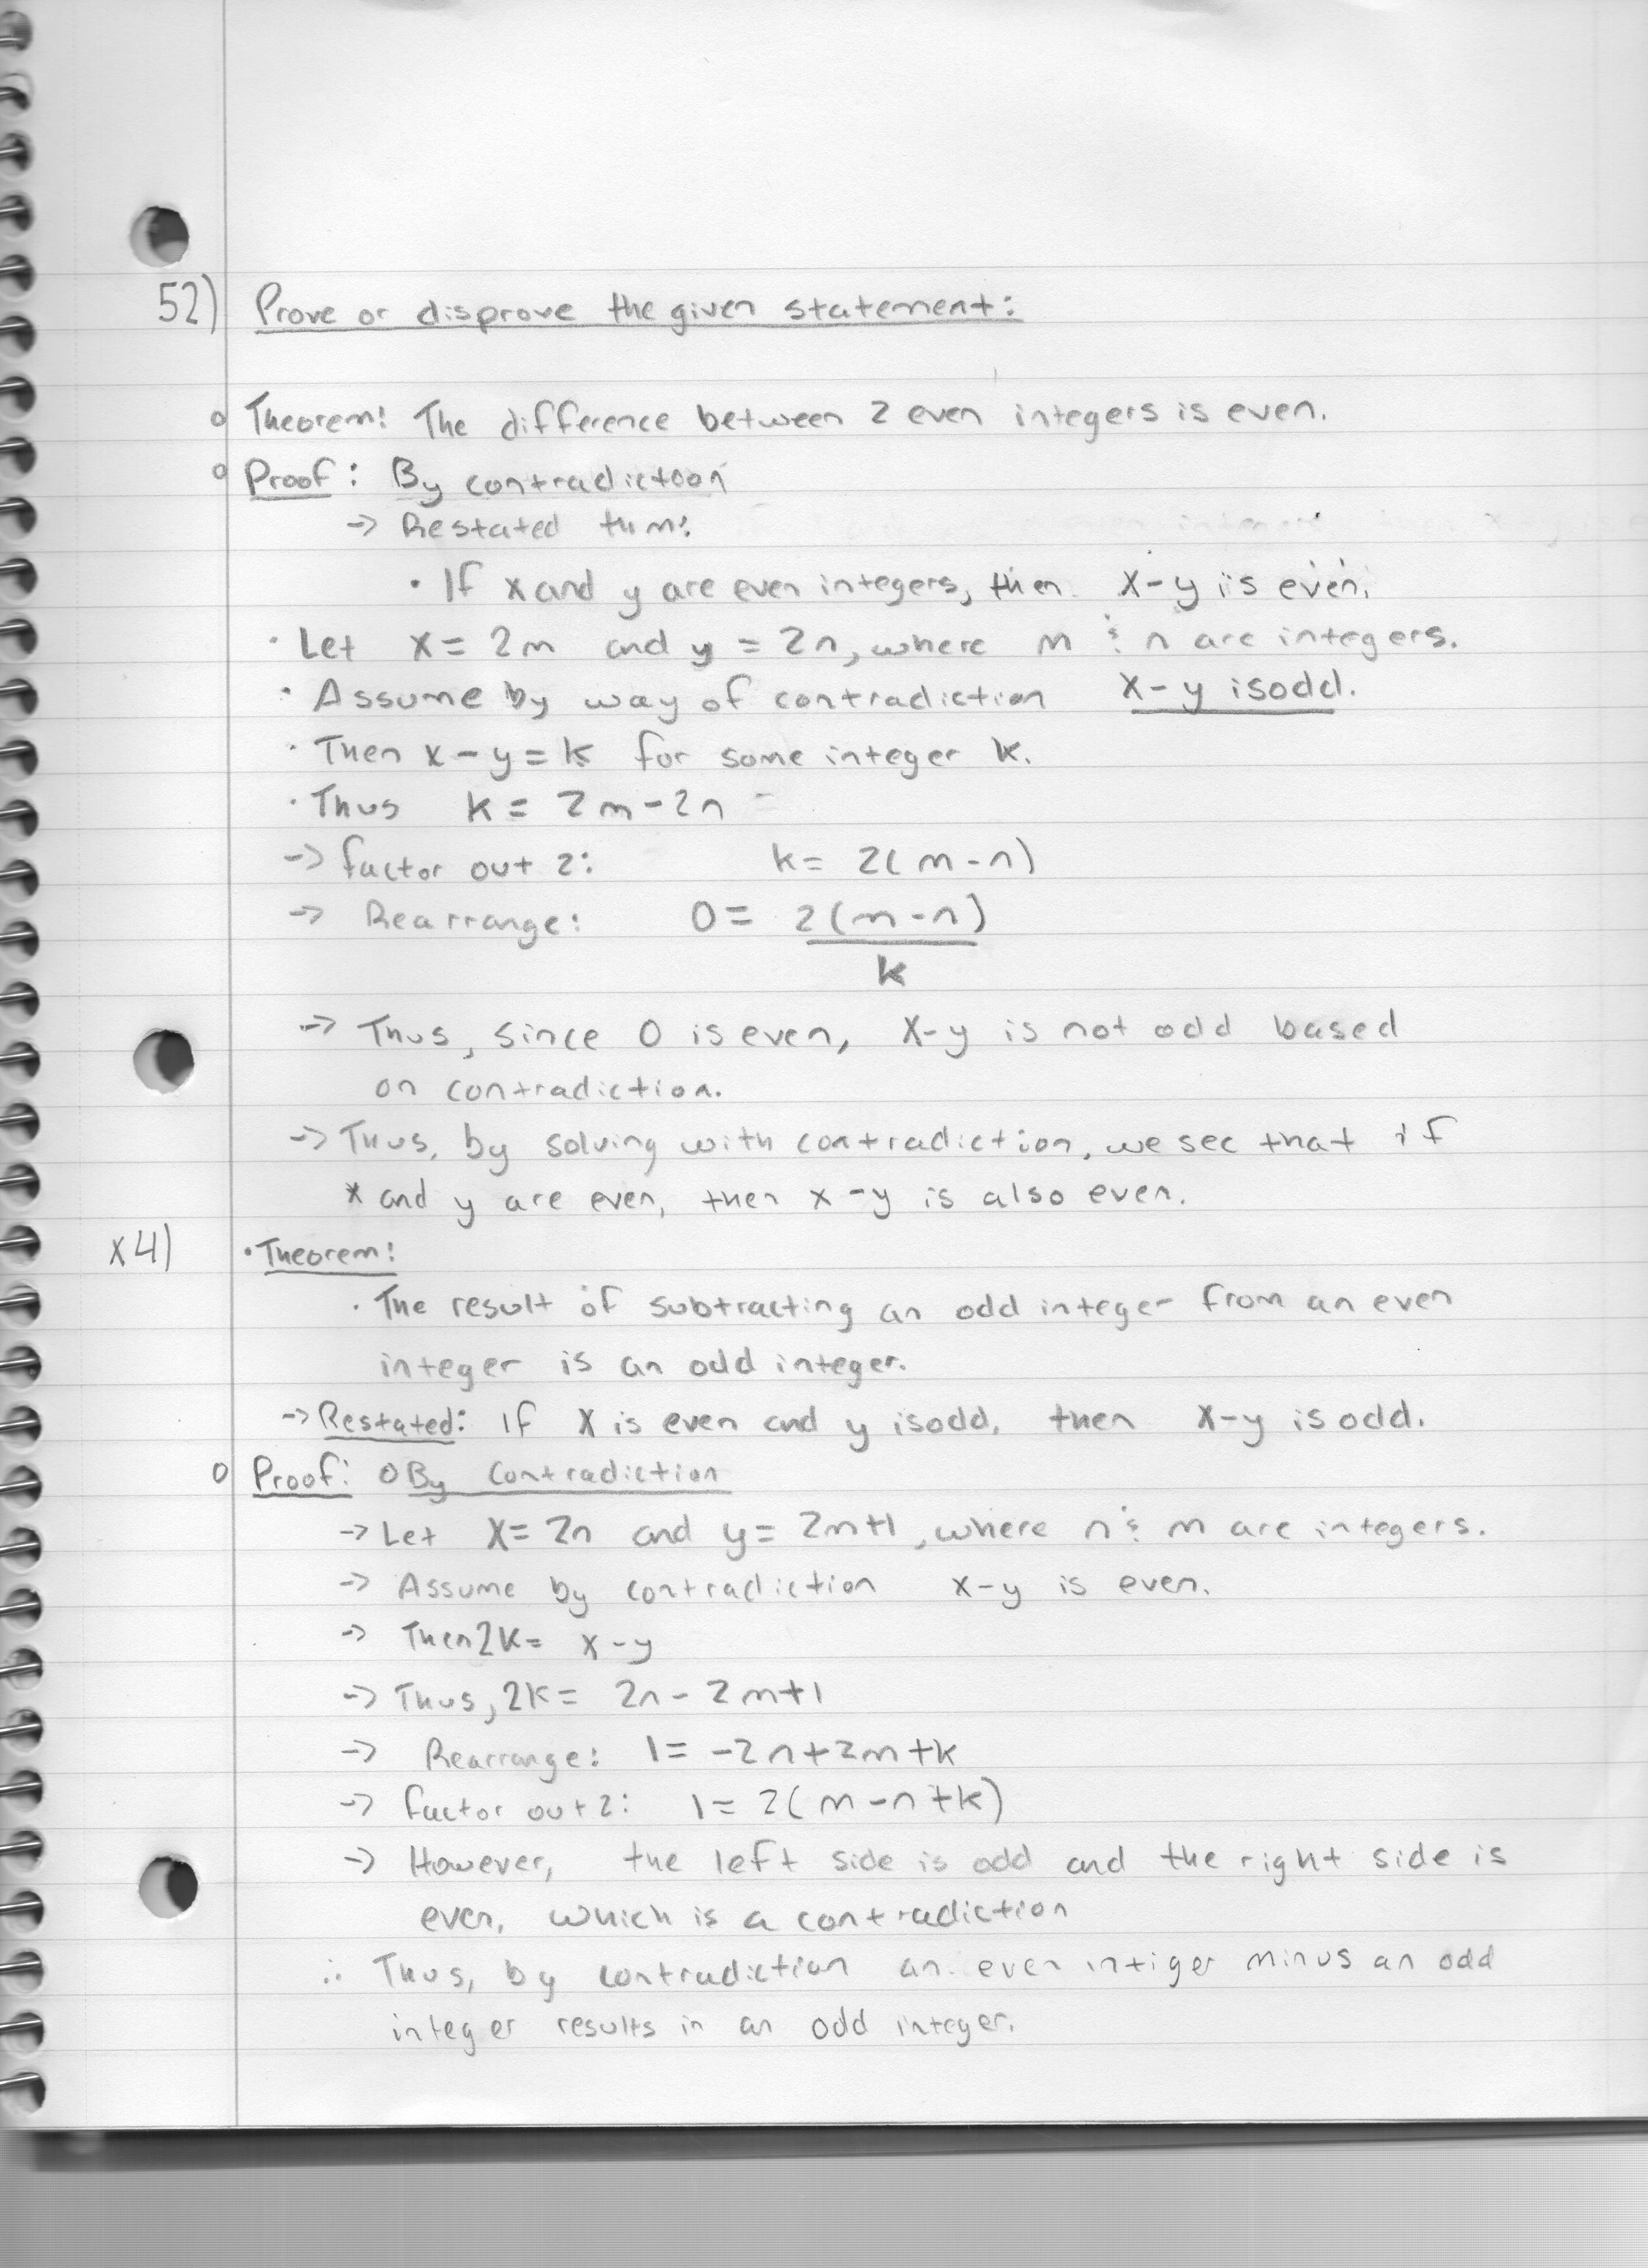 52) Prove or disprove the given statement:
Theorem: The difference between 2 even integers is even.
Proof: By contradictoon
-> Restated thm:
• If x and y are even integers, then x-y is even.
• Let x = 2m and y = 2n, where m & n are integers.
• Assume by way of contradiction x-y is odd.
• Then x-y = k for some integer k.
• Thus k = 2m-2n
-> factor out 2: k = 2(m-n)
-> Rearrange: 0 = 2(m-n)
k
-> Thus, since 0 is even, x-y is not odd based
on contradiction.
-> Thus, by solving with contradiction, we see that if
x and y are even, then x-y is also even.
x4) • Theorem:
• The result of subtracting an odd integer from an even
integer is an odd integer.
-> Restated: If x is even and y is odd, then x-y is odd.
Proof: By Contradiction
-> Let x = 2n and y = 2m+1, where n & m are integers.
-> Assume by contradiction x-y is even.
-> Then 2k = x-y
-> Thus, 2k = 2n-2m+1
-> Rearrange: 1 = -2n+2m+k
-> factor out 2: 1 = 2(m-n+k)
-> However, the left side is odd and the right side is
even, which is a contradiction
∴ Thus, by contradiction an even intiger minus an odd
integer results in an odd integer.